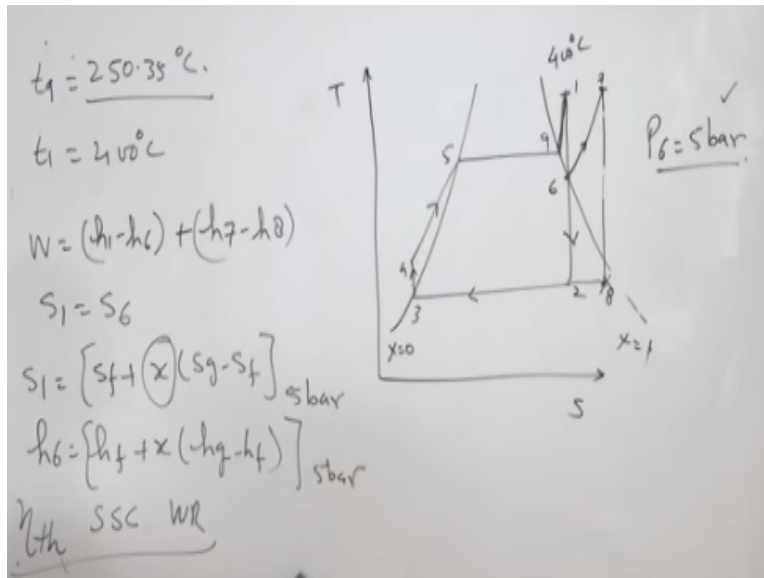 t9 = 250.35 °C.
t1 = 400°C
W = (h1-h6) + (h7-h8)
S1 = S6
S1 = [Sf + x (Sg-Sf] 5bar
h6 = [hf + x (hg-hf)] 5bar
ηth SSC WR
T
400°C
1
7
9
5
6
P6 = 5bar
✓
4
3
2
8
x=0
x=1
S